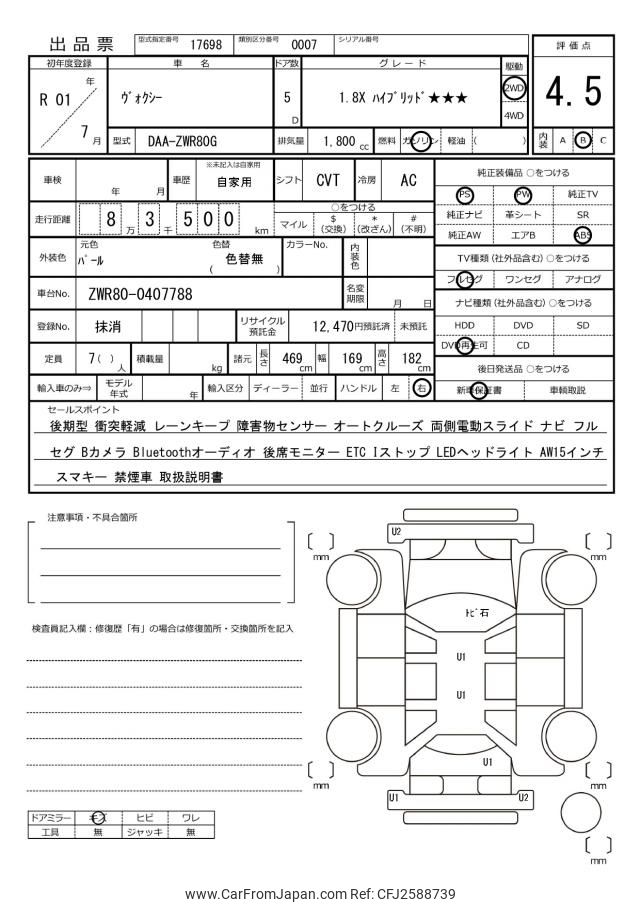 出品票 型式指定番号 17698 類別区分番号 0007 シリアル番号
評価点
4.5
内装 A B C
初年度登録 車名 ドア数 グレード 駆動
R 01 年 7 月 ヴォクシー 5 D 1.8X ハイブリッド★★★ 2WD
4WD
型式 DAA-ZWR80G 排気量 1,800 cc 燃料 ガソリン 軽油 ( )
車検 年 月 車歴 ※未記入は自家用 自家用 シフト CVT 冷房 AC
走行距離 8 万 3 千 5 0 0 km
○をつける
マイル $ (交換) * (改ざん) # (不明)
外装色 元色 パール 色替 ( 色替無 ) カラーNo. 内装色
車台No. ZWR80-0407788 名変期限 月 日
登録No. 抹消 リサイクル預託金 12,470円預託済 未預託
定員 7( ) 人 積載量 kg 諸元 長さ 469 cm 幅 169 cm 高さ 182 cm
輸入車のみ⇒ モデル年式 年 輸入区分 ディーラー 並行 ハンドル 左 右
純正装備品 ○をつける
PS PW 純正TV
純正ナビ 革シート SR
純正AW エアB ABS
TV種類 (社外品含む) ○をつける
フルセグ ワンセグ アナログ
ナビ種類 (社外品含む) ○をつける
HDD DVD SD
DVD再生可 CD
後日発送品 ○をつける
新車保証書 車輌取説
セールスポイント
後期型 衝突軽減 レーンキープ 障害物センサー オートクルーズ 両側電動スライド ナビ フル
セグ Bカメラ Bluetoothオーディオ 後席モニター ETC Iストップ LEDヘッドライト AW15インチ
スマキー 禁煙車 取扱説明書
注意事項・不具合箇所
検査員記入欄：修復歴「有」の場合は修復箇所・交換箇所を記入
ドアミラー キズ ヒビ ワレ
工具 無 ジャッキ 無
U2
[ ] mm
[ ] mm
トビ石
U1
U1
U1
[ ] mm
[ ] mm
U1 U2
[ ] mm
www.CarFromJapan.com Ref: CFJ2588739